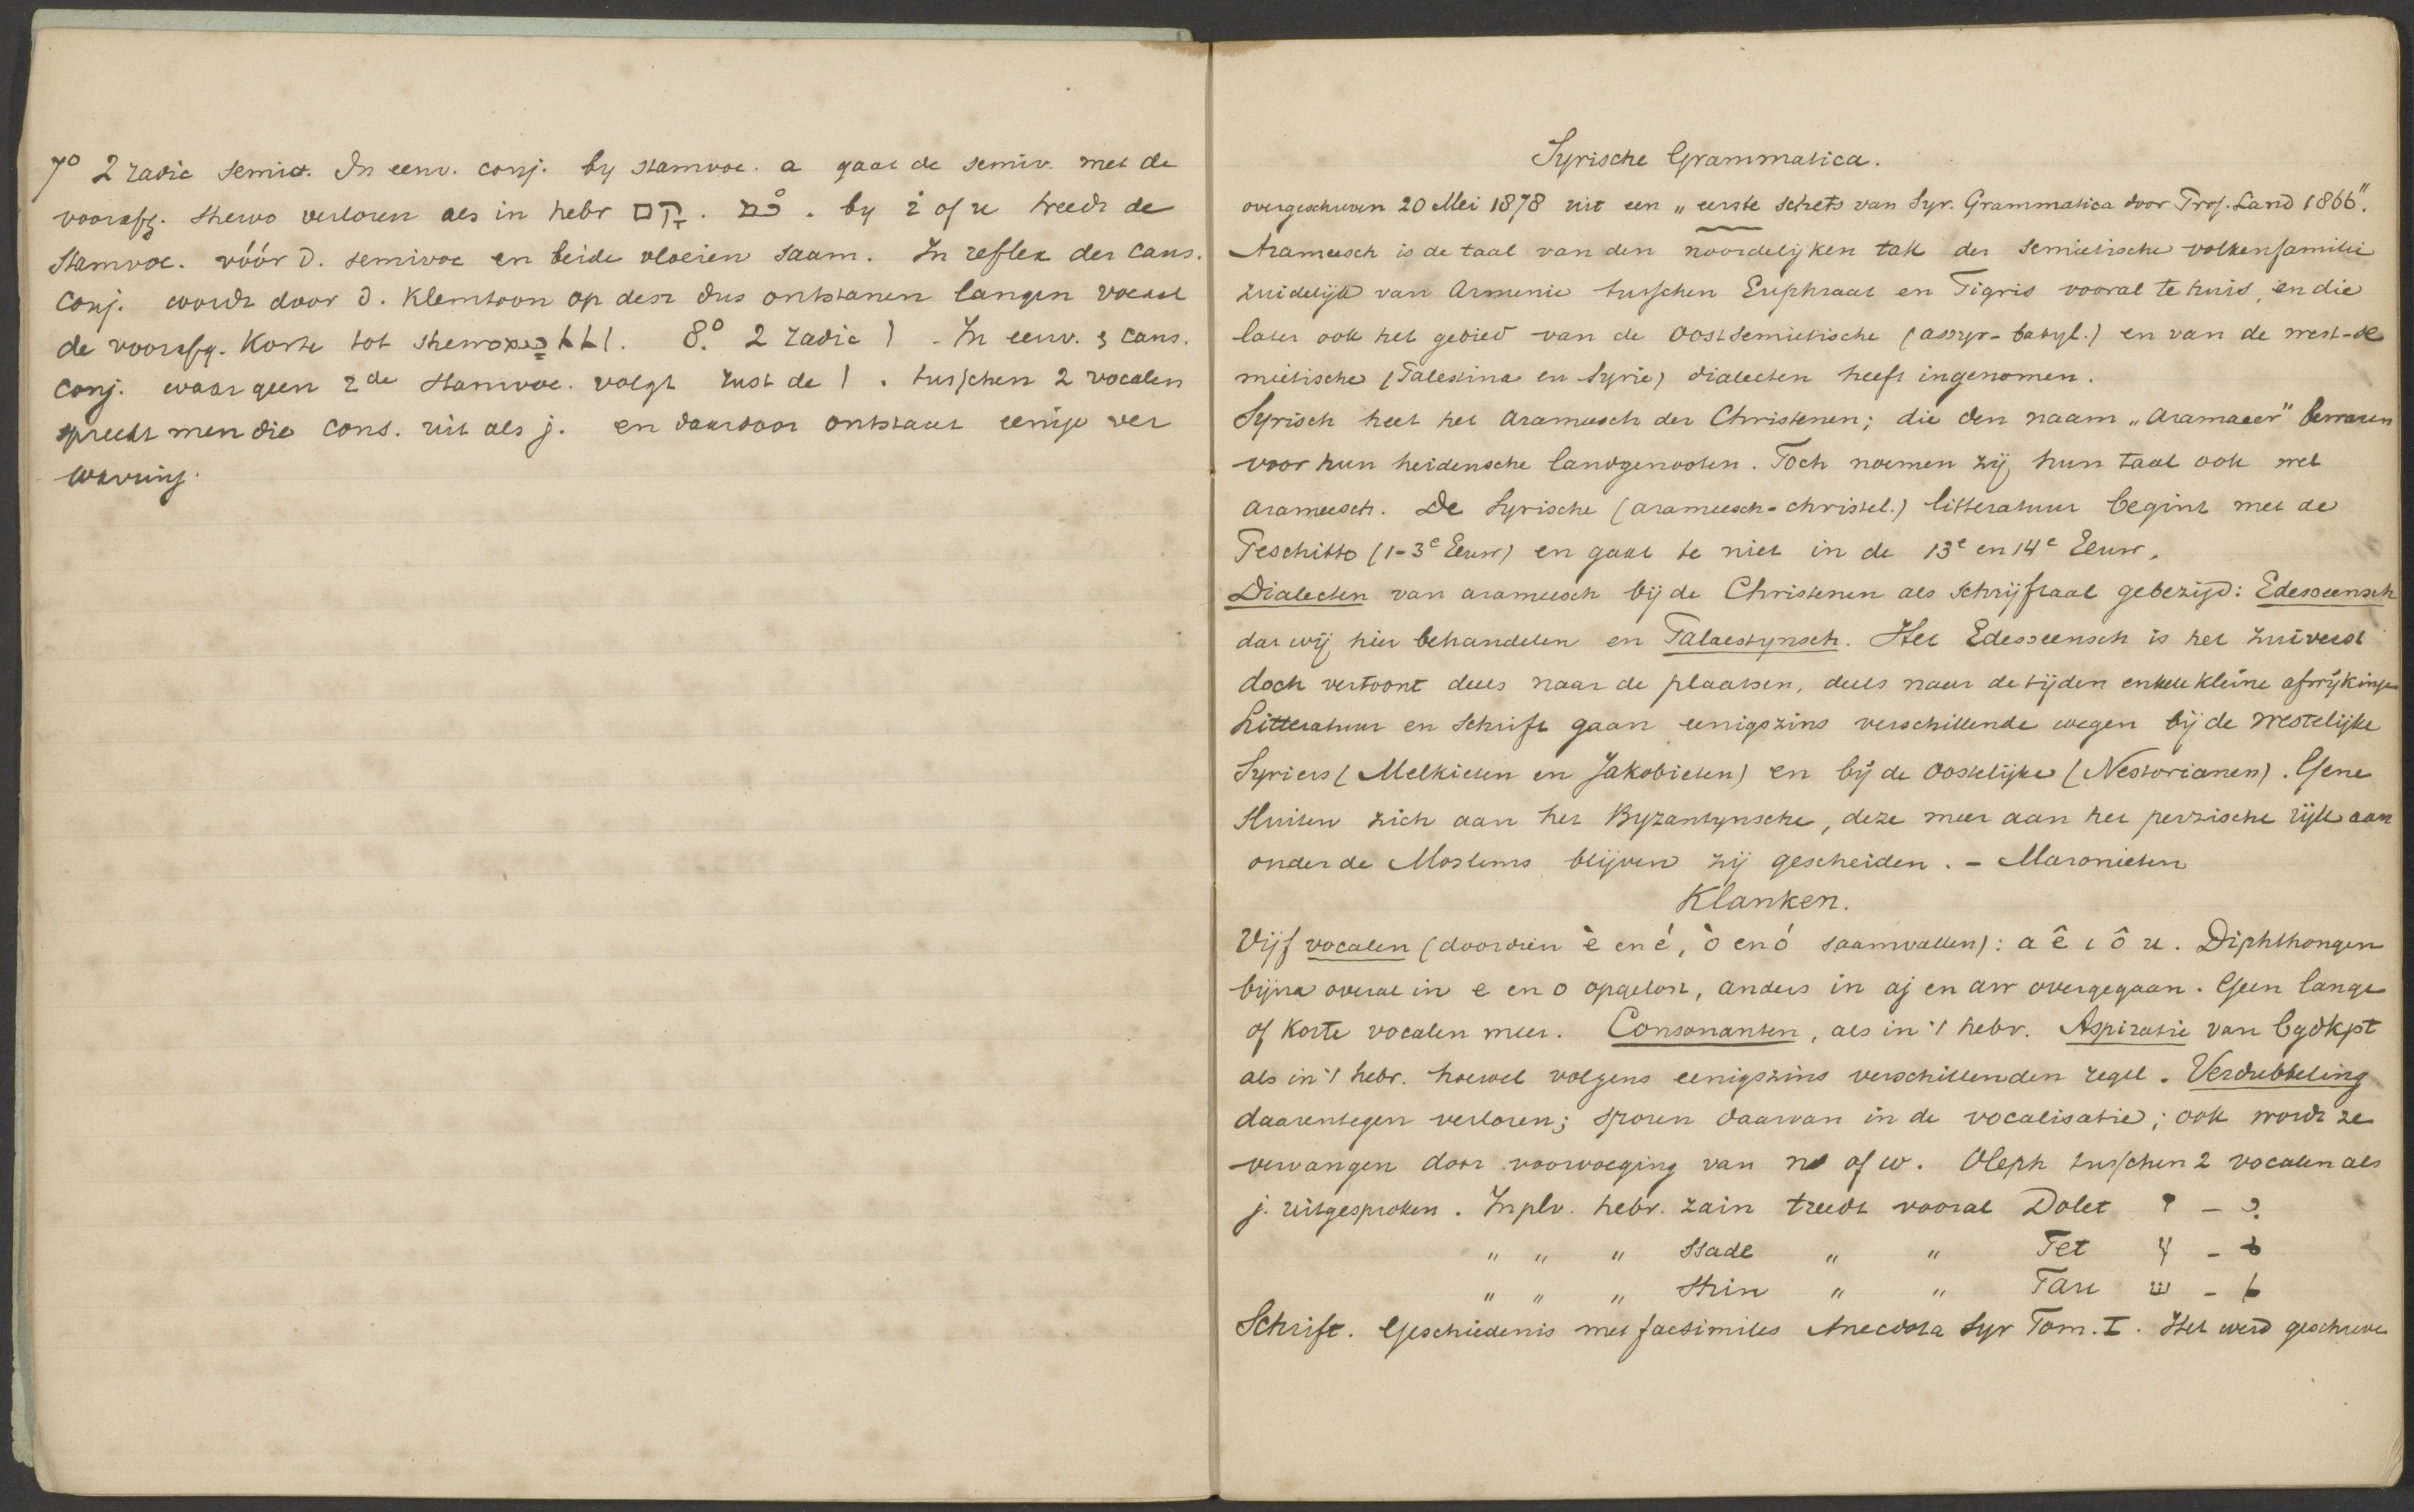 7o 2 radic semiv. In eenv. conj. by stamvoc. a gaat de semiv. met de
voorafg. shewo verloren als in hebr קָם . by i of u treedt de
Stamvoc. vóór d. semivoc en beide vloeien saam. In reflex der caus.
Conj. wordt door d. Klemtoon op desz dus ontstanen langen vocaal
de voorafg. Korte tot shewo 8.o 2 radic ܐ - In eenv. & caus.
Conj. waar geen 2de stamvoc. volgt rust de ܐ . tusschen 2 vocalen
spreekt men die cons. uit als j. en daardoor ontstaat eenige ver
warring.
Syrische Grammatica.
overgeschreven 20 Mei 1878 uit een „eerste schets van Syr. Grammatica door Prof. Land 1866".
Arameesch is de taal van den noordelijken tak der semietische volkenfamilie
zuidelijk van Armenie tusschen Euphraat en Tigris vooral te huis, en die
later ook het gebied van de Oostsemietische (assyr-babyl.) en van de west-se
mietische (Palestina en Syrie) dialecten heeft ingenomen.
Syrisch heet het Arameesch der Christenen; die den naam „Aramaeer" bewaren
voor hun heidensche landgenooten. Toch noemen zij hun taal ook wel
arameesch. De Syrische (arameesch-christel.) litteratuur begint met de
Peschitto (1-3e Eeuw) en gaat te niet in de 13e en 14e Eeuw.
Dialecten van arameesch bij de Christenen als schrijftaal gebezigd: Edesseensch
dat wij hier behandelen en Palaestynsch. Het Edesseensch is het zuiverst
doch vertoont deels naar de plaatsen, deels naar de tijden enkele kleine afwijkinge
Litteratuur en Schrift gaan eenigszins verschillende wegen bij de westelijke
Syriers (Melkieten en Jakobieten) en bij de Oostelijke (Nestorianen). Gene
sluiten zich aan het Byzantynsche, deze meer aan het perzische rijk aan
onder de Moslems blijven zij gescheiden. - Maronieten
Klanken.
Vijf vocalen (doordien è en é, ò en ó saamvallen): a ê i ô u. Diphthongen
bijna overal in e en o opgelost, anders in aj en aw overgegaan. Geen lange
of Korte vocalen meer. Consonanten, als in 't hebr. Aspiratie van bgdkpt
als in 't hebr. hoewel volgens eenigszins verschillenden regel. Verdubbeling
daarentegen verloren; sporen daarvan in de vocalisatie; ook wordt ze
vervangen door voorvoeging van n of w. Oleph tusschen 2 vocalen als
j. uitgesproken. In plv. hebr. zain treedt vooral Dolet ז - ܕ
" " " Ssade " " Tet צ - ܛ
" " " Shin " " Tau ש - ܬ
Schrift. Geschiedenis met facsimiles Anecdota Syr Tom. I. Het werd geschreve